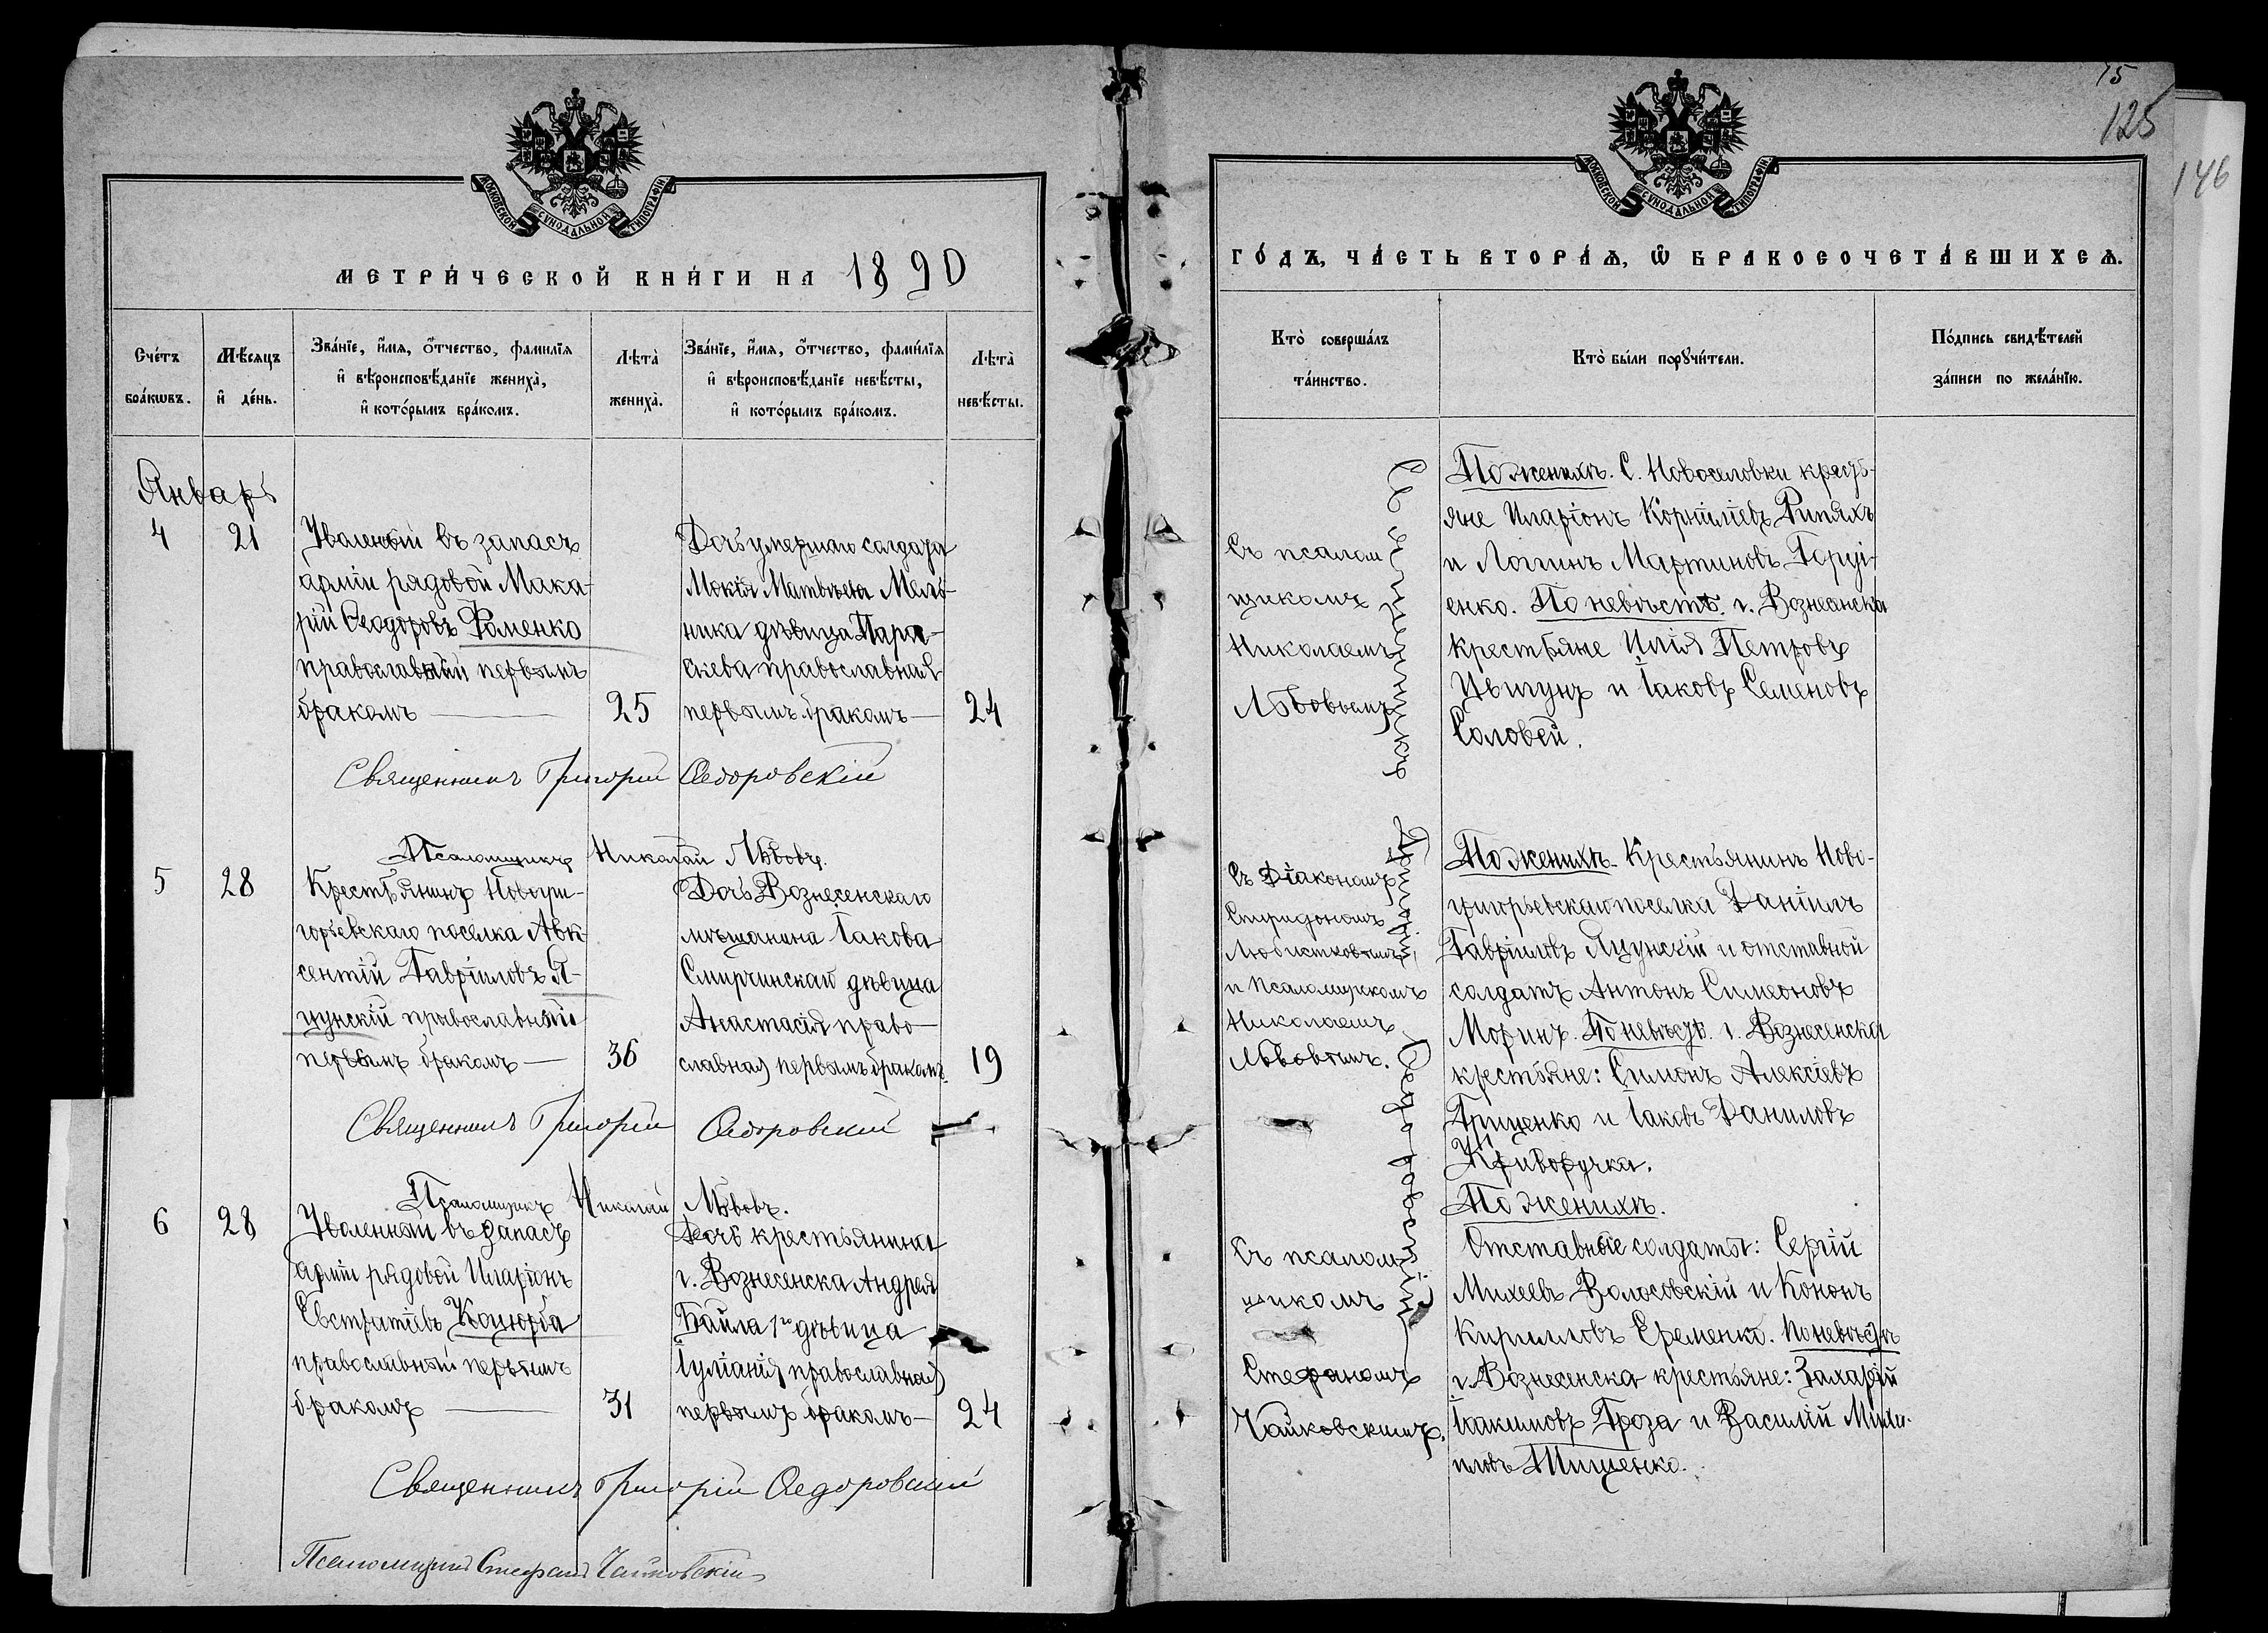 МОСКОВСКОЙ СѴНОДАЛЬНОЙ ТИПОГРАФІИ
МЕТРИ́ЧЕСКОЙ КНИ́ГИ НА 1890
Сче́тъ бра́кωвъ.
Мѣ́сяцъ и҆ де́нь.
Зва́нїе, и҆́мя, ѻ҆́тчество, фами́лїя
и҆ вѣроисповѣ́данїе жениха̀,
и҆ кото́рымъ бра́комъ.
Лѣта̀ жениха̀.
Зва́нїе, и҆́мя, ѻ҆́тчество, фами́лїя
и҆ вѣроисповѣ́данїе невѣ́сты,
и҆ кото́рымъ бра́комъ.
Лѣта̀ невѣ́сты.
Январь
4 21
Уволенный въ запасъ
арміи рядовой Мака-
рій Ѳеодоровъ Фоменко
православный первымъ
бракомъ —
25
Дочь умершаго солдата
Мокія Матвѣева Мель-
ника дѣвица Пара-
скева православная
первымъ бракомъ —
24
Священникъ Григорій Ѳедоровскій
Псаломщикъ Николай Львовъ.
5 28
Крестьянинъ Новогри-
горьевскаго поселка Авк-
сентій Гавріиловъ Я-
цунскій православный
первымъ бракомъ —
36
Дочь Вознесенскаго
мѣщанина Іакова
Смирчинскаго дѣвица
Анастасія право-
славная первымъ бракомъ.
19
Священникъ Григорій Ѳедоровскій
Псаломщикъ Николай Львовъ.
6 28
Уволенный въ запасъ
арміи рядовой Иларіонъ
Евстратіевъ Коцюрба
православный первымъ
бракомъ —
31
Дочь крестьянина
г. Вознесенска Андрея
Байла дѣвица
Іуліанія православная
первымъ бракомъ —
24
Священникъ Григорій Ѳедоровскій
Псаломщикъ Стефанъ Чайковскій
75
125
146
МОСКОВСКОЙ СѴНОДАЛЬНОЙ ТИПОГРАФІИ
ГО́ДЪ, ЧА́СТЬ ВТОРА́Я, Ѡ҆ БРАКОСОЧЕТА́ВШИХСЯ.
Кто̀ соверша́лъ
та́инство.
Кто̀ бы́ли порꙋчи́тели.
По́дпись свидѣ́телей
за́писи по жела́нїю.
Священникъ Григорій Ѳедоровскій
Съ псалом
щикомъ
Николаемъ
Львовымъ
По женихѣ. С. Новоселовки кресть-
яне Иларіонъ Корниліевъ Рипяхъ
и Логинъ Мартиновъ
енко. По невѣстѣ. г. Вознесенска
крестьяне Илія Петровъ
Цвигунъ и Іаковъ Семеновъ
Соловей.
Съ Діакономъ
Спиридономъ
Любистковымъ
и Псаломщикомъ
Николаемъ
Львовымъ.
По женихѣ. Крестьянинъ Ново-
григорьевскаго поселка Даніилъ
Гавріиловъ Яцунскій и отставной
солдатъ Антонъ Симеоновъ
Моринъ. По невѣстѣ. г. Вознесенска
крестьяне: Симонъ Алексіевъ
Гриценко и Іаковъ Даниловъ
Криворучка.
Съ псалом
щикомъ
Стефаномъ
Чайковскимъ.
По женихѣ.
Отставные солдаты: Сергій
Михеевъ Волосовскій и Кононъ
Кирилловъ Еременко. По невѣстѣ
г. Вознесенска крестьяне: Захарій
Іоакимовъ Гроза и Василій Миха-
иловъ Тищенко.